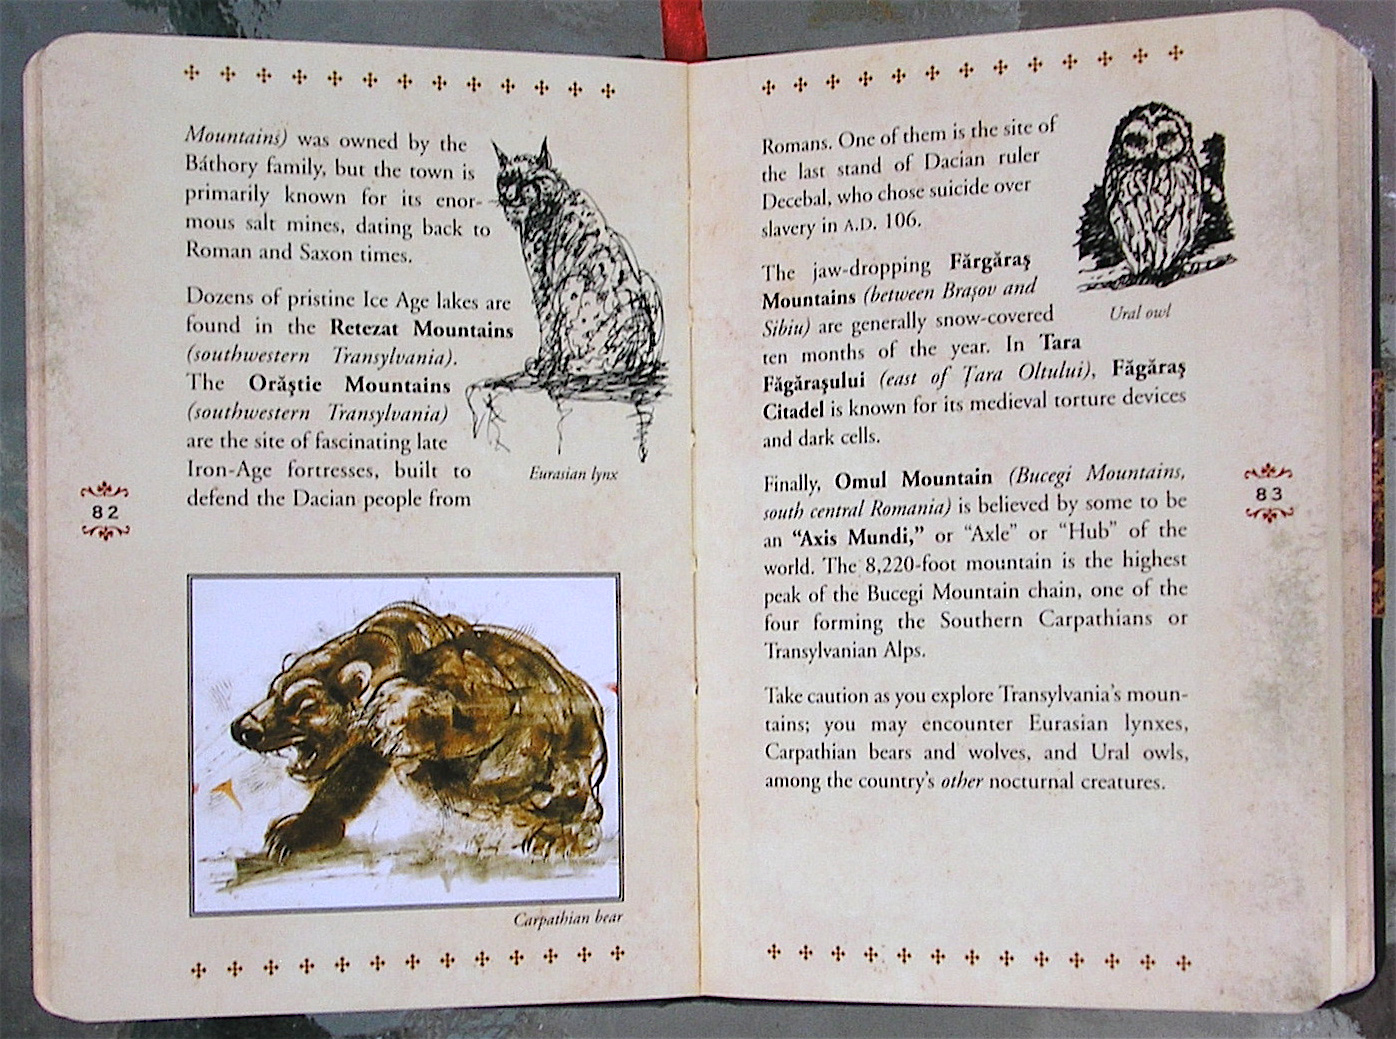 Mountains) was owned by the
Báthory family, but the town is
primarily known for its enor-
mous salt mines, dating back to
Roman and Saxon times.
Dozens of pristine Ice Age lakes are
found in the Retezat Mountains
(southwestern Transylvania).
The Orăştie Mountains
(southwestern Transylvania)
are the site of fascinating late
Iron-Age fortresses, built to
defend the Dacian people from
Eurasian lynx
82
Carpathian bear
Romans. One of them is the site of
the last stand of Dacian ruler
Decebal, who chose suicide over
slavery in A.D. 106.
The jaw-dropping Fărgăraş
Mountains (between Braşov and
Sibiu) are generally snow-covered
ten months of the year. In Tara
Făgăraşului (east of Ţara Oltului), Făgăraş
Citadel is known for its medieval torture devices
and dark cells.
Ural owl
Finally, Omul Mountain (Bucegi Mountains,
south central Romania) is believed by some to be
an “Axis Mundi,” or “Axle” or “Hub” of the
world. The 8,220-foot mountain is the highest
peak of the Bucegi Mountain chain, one of the
four forming the Southern Carpathians or
Transylvanian Alps.
Take caution as you explore Transylvania's moun-
tains; you may encounter Eurasian lynxes,
Carpathian bears and wolves, and Ural owls,
among the country's other nocturnal creatures.
83